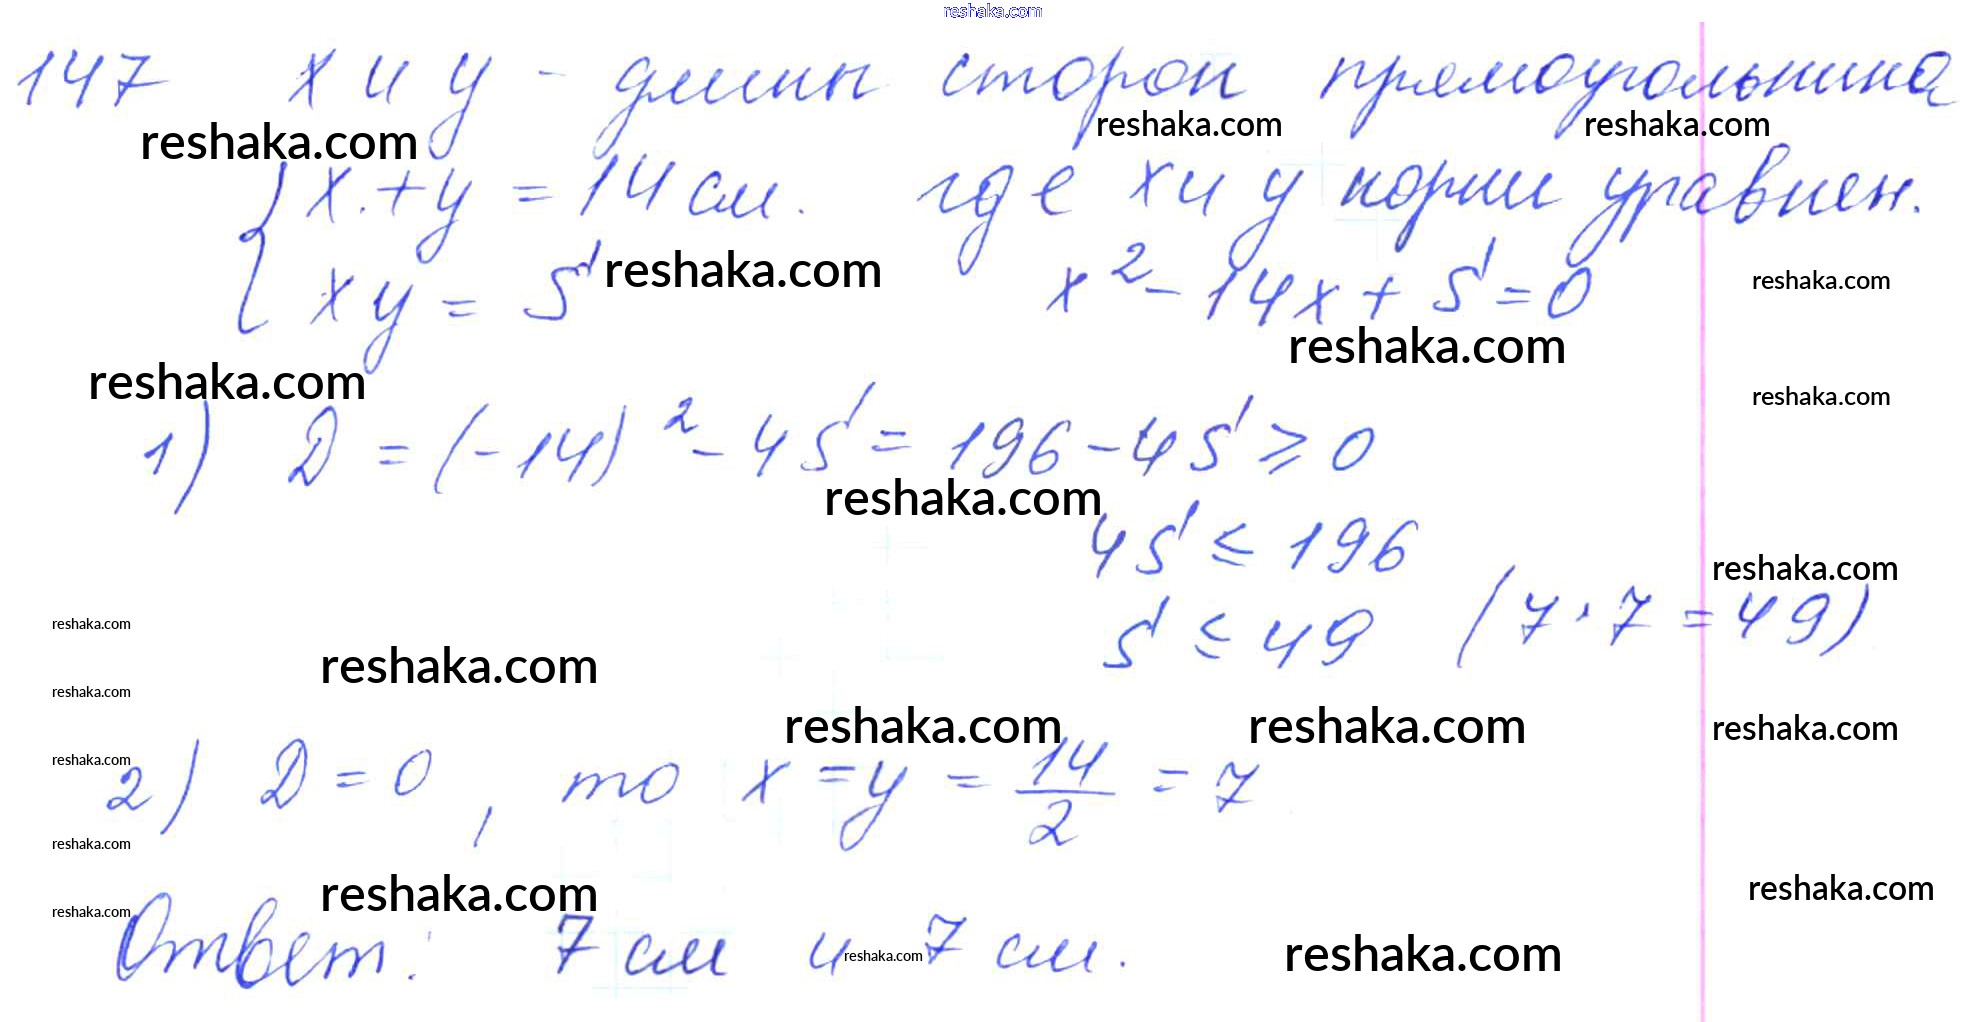 reshaka.com
147 х и у - длины сторон прямоугольника
reshaka.com reshaka.com reshaka.com
{ x + y = 14 см. где х и у корни уравнен.
xy = S reshaka.com x² - 14x + S = 0 reshaka.com
reshaka.com
reshaka.com reshaka.com
1) D = (-14)² - 4S = 196 - 4S ≥ 0
reshaka.com
4S ≤ 196
reshaka.com
reshaka.com S ≤ 49 (7 · 7 = 49)
reshaka.com
reshaka.com
reshaka.com reshaka.com reshaka.com
reshaka.com
2) D = 0, то x = y = 14/2 = 7
reshaka.com
reshaka.com reshaka.com
reshaka.com
Ответ: 7 см и 7 см.
reshaka.com reshaka.com